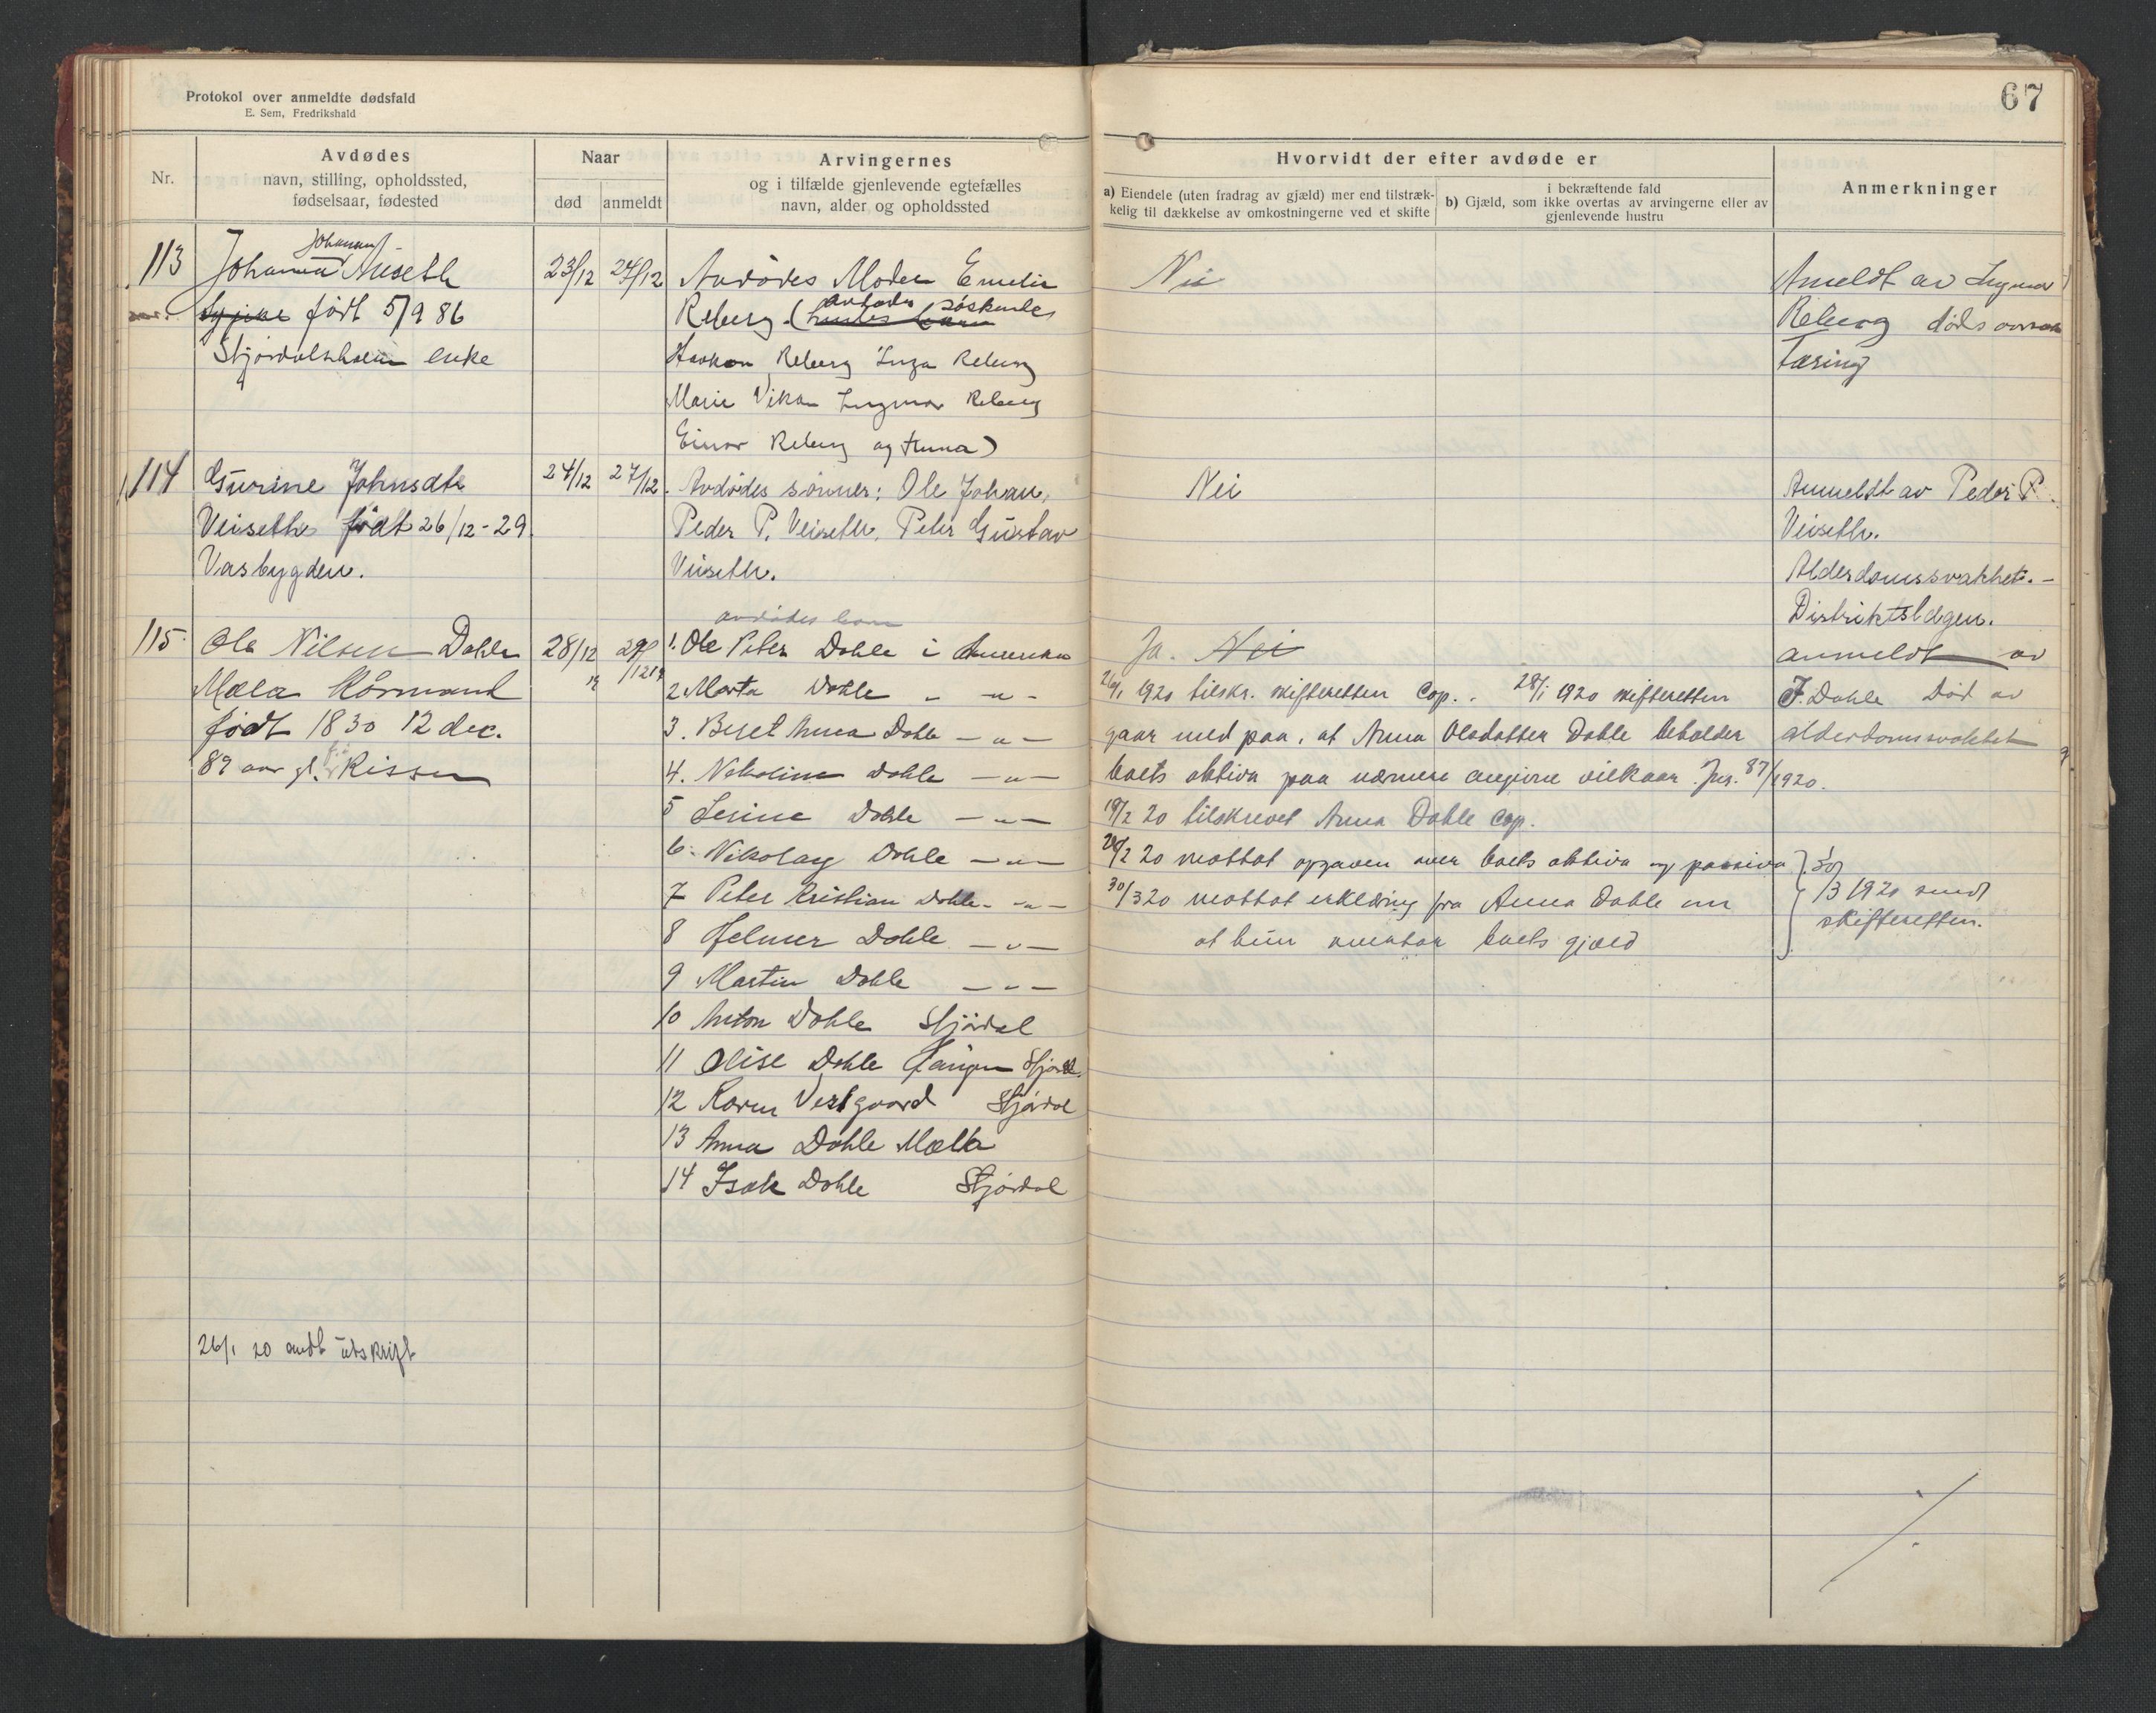 Protokol over anmeldte dødsfald
E. Sem, Fredrikshald
67
Nr.
Avdødes
navn, stilling, opholdssted,
fødselsaar, fødested
Naar
død
anmeldt
Arvingernes
og i tilfælde gjenlevende egtefælles
navn, alder og opholdssted
Hvorvidt der efter avdøde er
a) Eiendele (uten fradrag av gjæld) mer end tilstræk-
kelig til dækkelse av omkostningerne ved et skifte
i bekræftende fald
b) Gjæld, som ikke overtas av arvingerne eller av
gjenlevende hustru
Anmerkninger
113
Johanna Auseth
født 5/9 86
Stjørdalshalsen enke
23/12
24/12
Avdødes Moder Emelie
Reberg (avdødes søskende
Haakon Reberg Inga Reberg
Marie Vikan Ingmar Reberg
Einar Reberg og Anna)
Nei
Anmeldt av Ingmar
Reberg dødsaarsak
tæring
114
Gurine Johnsdtr
Veiseth født 26/12-29.
Vasbygden.
24/12
27/12.
Avdødes sønner: Ole Johan,
Peder P. Veiseth, Peter Gustav
Veiseth.
Nei
Anmeldt av Peder P.
Veiseth.
Alderdomssvakhet. -
Distriktslægen.
115.
Ole Nilsen Dahle
Mæla Kårmand
født 1830 12 dec.
89 aar gl. Rissen
28/12
19
29/12 19
avdødes barn
1. Ole Peter Dahle i Amerika
2. Marta Dahle - " -
3. Beret Anna Dahle - " -
4. Nikoline Dahle - " -
5 Serine Dahle - " -
6. Nikolay Dahle - " -
7 Peter Kristian Dahle - " -
8 Helmer Dahle - " -
9 Martin Dahle - " -
10 Anton Dahle Stjørdal
11 Elise Dahle Haugen Stjørdal
12 Karen Vestgaard Stjørdal
13 Anna Dahle Mæla
14 Isak Dahle Stjørdal
Ja. Nei
26/1 1920 tilskr. skifteretten Cop. . 28/1 1920 skifteretten
gaar med paa, at Anna Olsdatter Dahle beholder
boets aktiva paa nærmere angivne vilkaar. Jnr. 87/1920.
19/2 20 tilskrevet Anna Dahle Cop.
28/2 20 mottat opgaven over boets aktiva og passiva
30/3 20 mottat erklæring fra Anna Dahle om
at hun overtar boets gjæld
anmeldt av
J. Dahle Død av
alderdomssvakhet
30/3 1920 sendt
skifteretten.
26/1 20 sendt utskrift